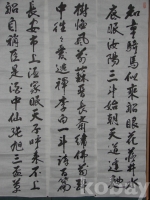 知章騎馬似乘船眼花落井水
底眠汝陽三斗始朝天道逢麴
樹臨風前蘇晉長齋繡佛前醉
中往往愛逃禪李白一斗詩百篇
長安市上酒家眠天子呼來不上
船自稱臣是酒中仙張旭三盃草
kobay